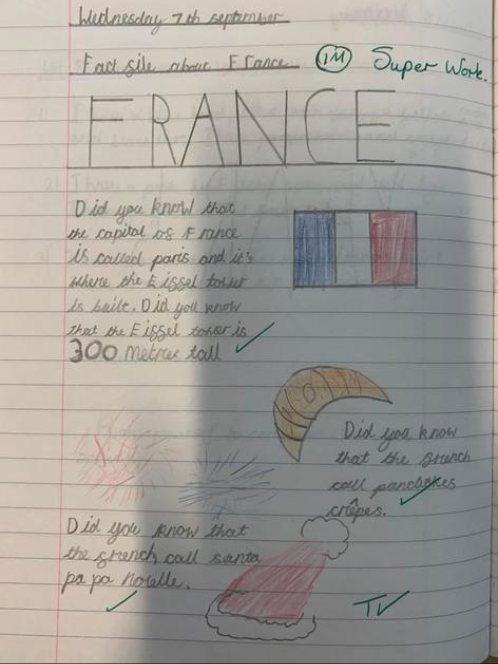 Wednesday 7th september
Fact file about France 1M Super Work.
FRANCE
Did you know that
the capital of France
is called paris and it's
where the Eiffel tower
is built. Did you know
that the Eiffel tower is
300 metres tall
Did you know
that the french
call pancakes
crêpes.
Did you know that
the french call santa
pa pa Noelle.
TV